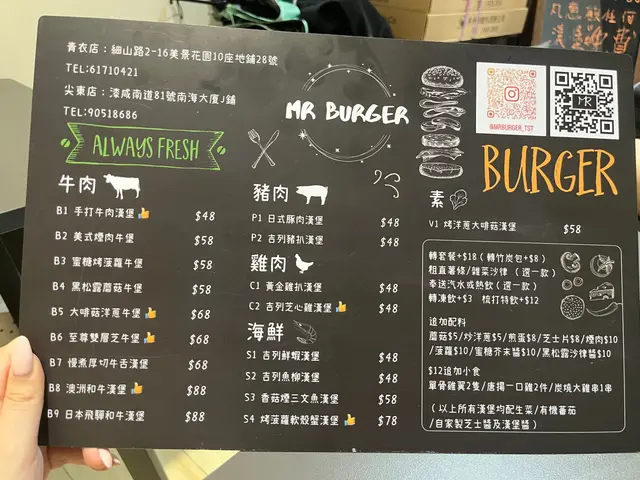 青衣店：細山路2-16美景花園10座地鋪28號
TEL:61710421
尖東店：漆咸南道81號南海大廈J鋪
TEL:90518686
ALWAYS FRESH
MR BURGER
@MRBURGER_TST
MR
BURGER
牛肉
B1 手打牛肉漢堡 $48
B2 美式煙肉牛堡 $58
B3 蜜糖烤菠蘿牛堡 $58
B4 黑松露蘑菇牛堡 $58
B5 大啡菇洋蔥牛堡 $68
B6 至尊雙層芝牛堡 $68
B7 慢煮厚切牛舌漢堡 $68
B8 澳洲和牛漢堡 $88
B9 日本飛驒和牛漢堡 $88
豬肉
P1 日式豚肉漢堡 $48
P2 吉列豬扒漢堡 $48
雞肉
C1 黃金雞扒漢堡 $48
C2 吉列芝心雞漢堡 $48
海鮮
S1 吉列鮮蝦漢堡 $48
S2 吉列魚柳漢堡 $48
S3 香菇煙三文魚漢堡 $58
S4 烤菠蘿軟殼蟹漢堡 $78
素
V1 烤洋蔥大啡菇漢堡 $58
轉套餐+$18（轉竹炭包+$8）
粗直薯條/雜菜沙律（選一款）
奉送汽水或熱飲（選一款）
轉凍飲+$3 梳打特飲+$12
追加配料
蘑菇$5/炒洋蔥$5/煎蛋$8/芝士片$8/煙肉$10
/菠蘿$10/蜜糖芥末醬$10/黑松露沙律醬$10
$12追加小食
單骨雞翼2隻/唐揚一口雞2件/炭燒大雞串1串
（以上所有漢堡均配生菜/有機蕃茄
/自家製芝士醬及漢堡醬）